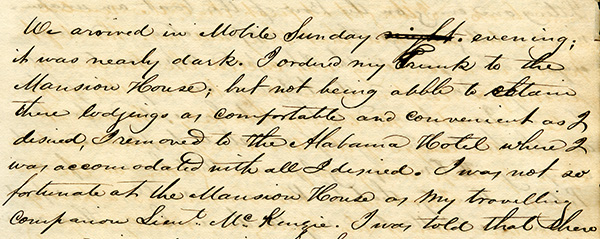 We arrived in Mobile Sunday night. evening;
it was nearly dark. I orderd my Trunk to the
Mansion House; but not being abble to obtain
there lodgings as comfortable and convenient as I
desired, I removed to the Alabama Hotel where I
was accomodated with all I desired. I was not so
fortunate at the Mansion House as my travelling
companion Lieut. McKenzie. I was told that there